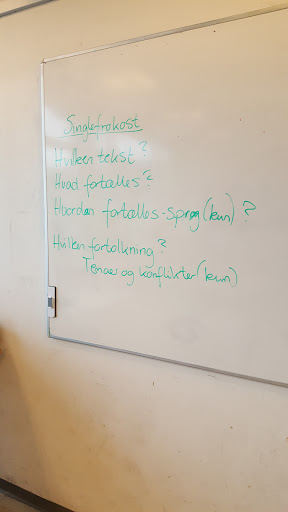 Singlefrokost
Hvilken tekst?
Hvad fortælles?
Hvordan fortælles - sprog (kun)?
Hvilken fortolkning?
Temaer og konflikter (kun)